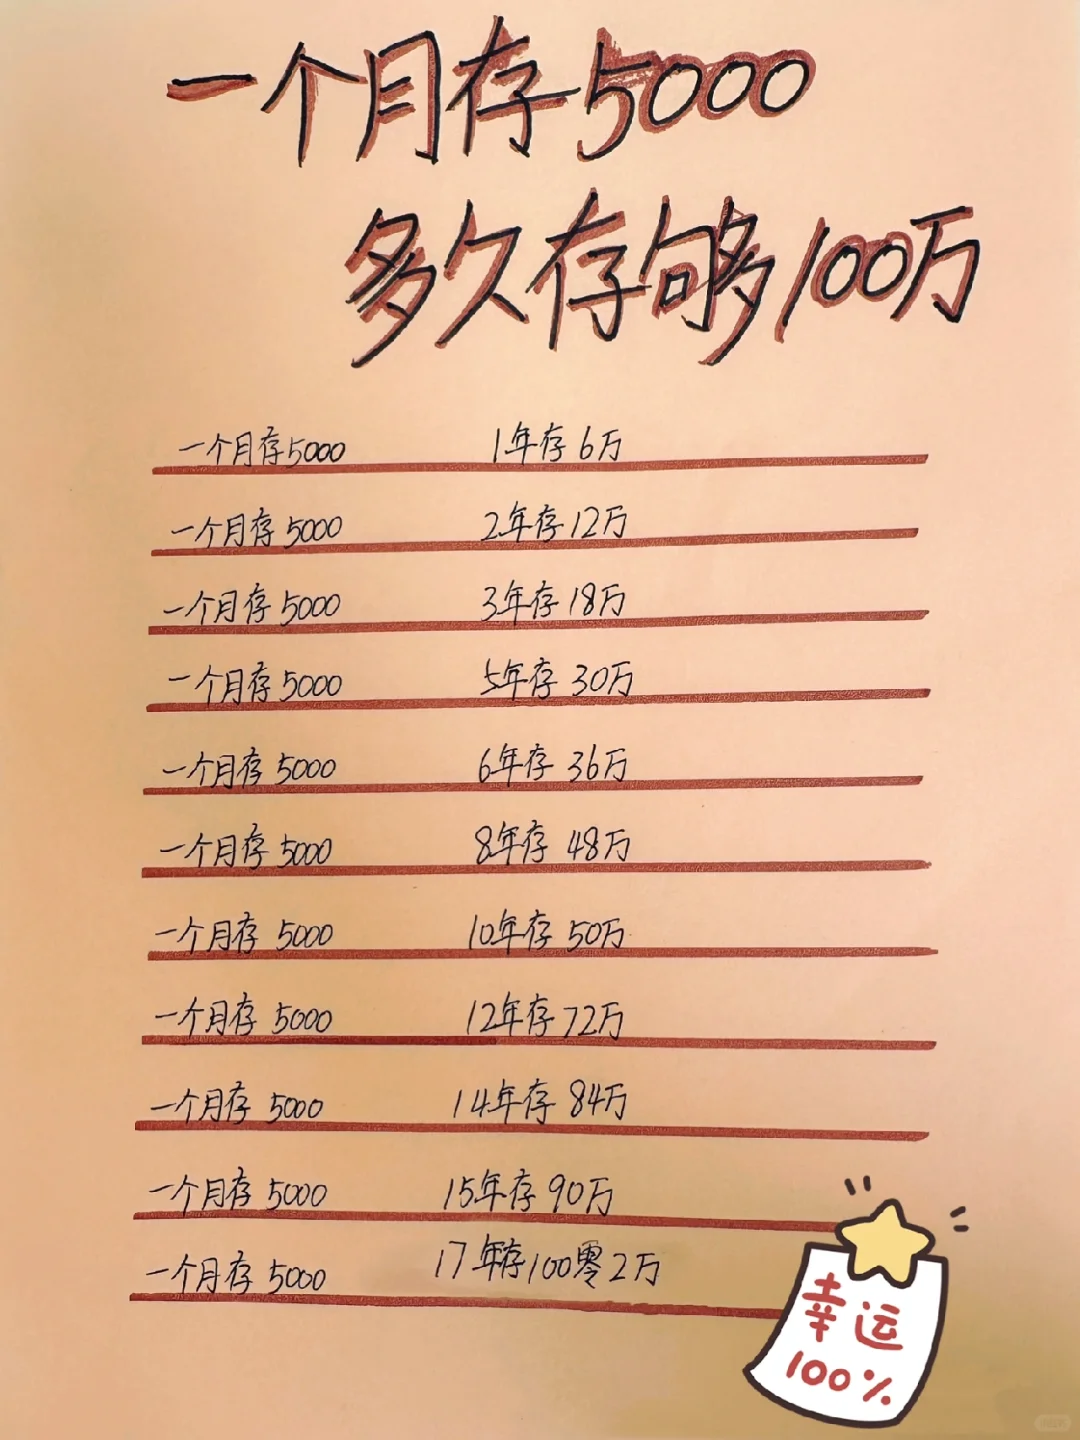 一个月存5000
多久存够100万
一个月存5000 1年存6万
一个月存5000 2年存12万
一个月存5000 3年存18万
一个月存5000 5年存30万
一个月存5000 6年存36万
一个月存5000 8年存48万
一个月存5000 10年存50万
一个月存5000 12年存72万
一个月存5000 14年存84万
一个月存5000 15年存90万
一个月存5000 17年存100零2万
幸运
100%